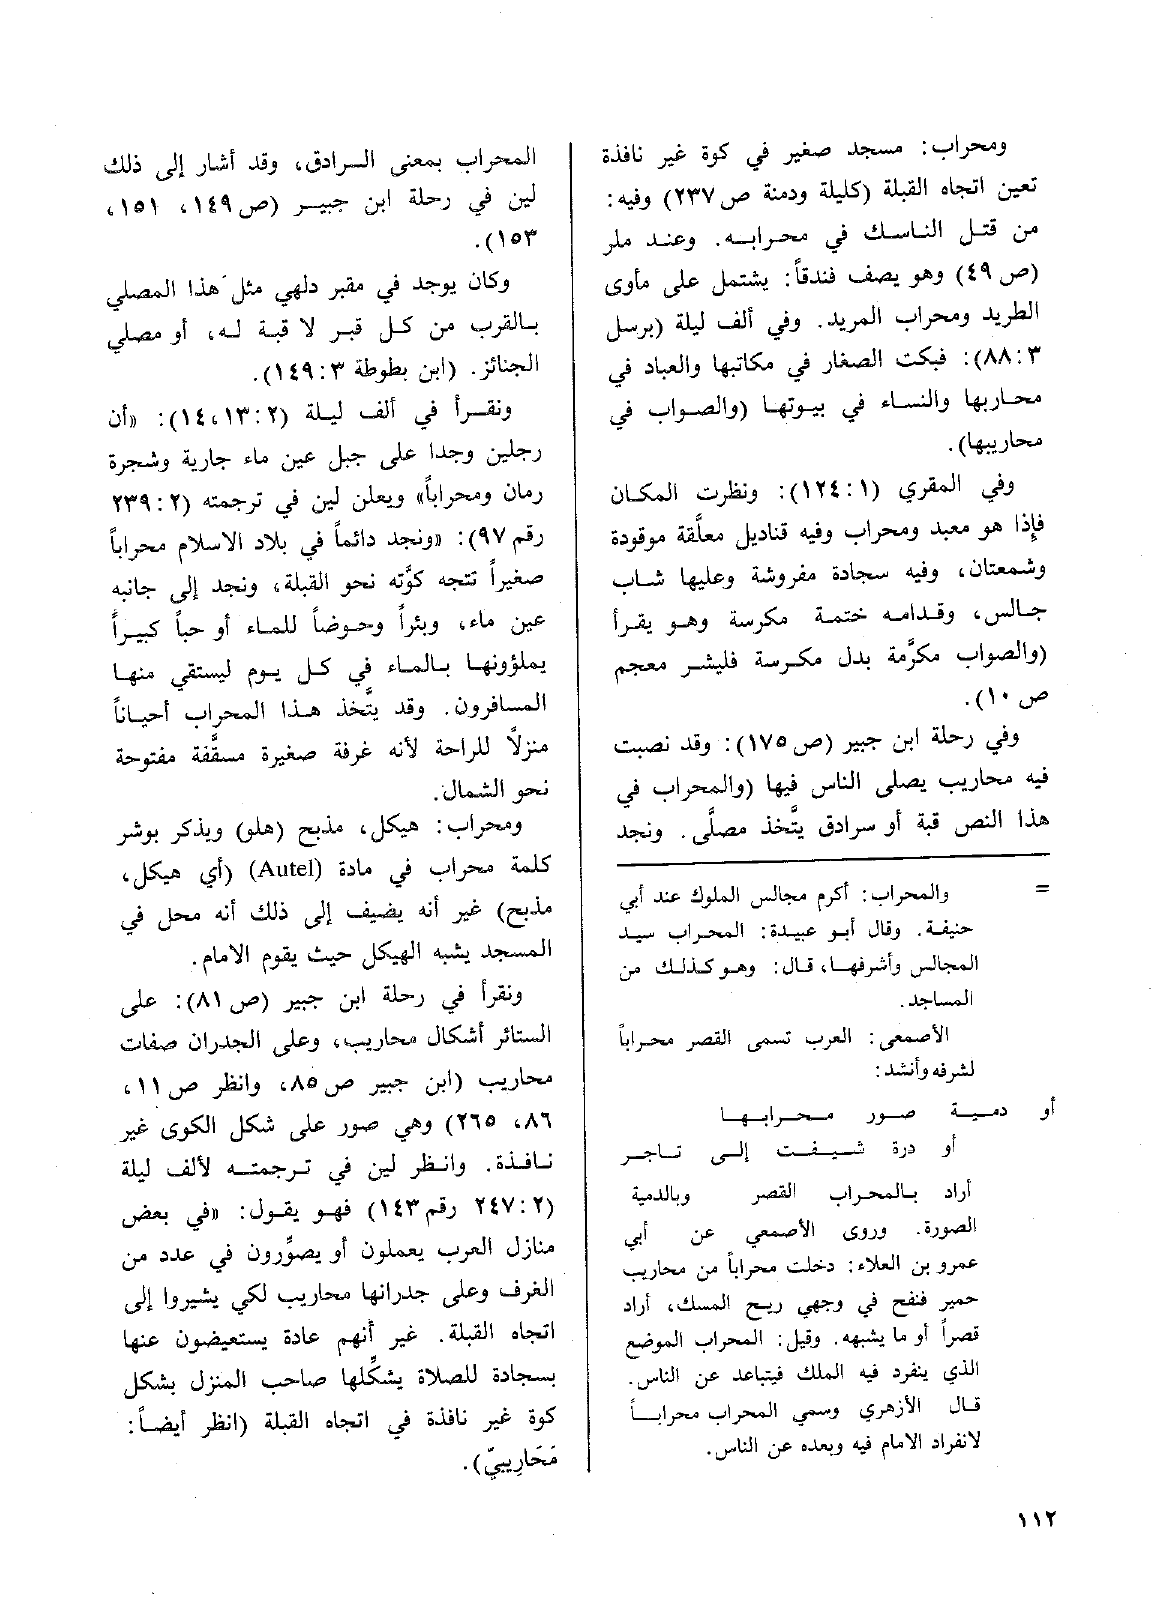 ومحراب: مسجد صغير في كوة غير نافذة
تعين اتجاه القبلة (كليلة ودمنة ص٢٣٧) وفيه:
من قتل الناسك في محرابه. وعند ملر
(ص٤٩) وهو يصف فندقاً: يشتمل على مأوى
الطريد ومحراب المريد. وفي ألف ليلة (برسل
٣: ٨٨): فبكت الصغار في مكاتبها والعباد في
محاربها والنساء في بيوتها (والصواب في
محاريبها).
وفي المقري (١: ١٢٤): ونظرت المكان
فإذا هو معبد ومحراب وفيه قناديل معلَّقة موقودة
وشمعتان، وفيه سجادة مفروشة وعليها شاب
جالس، وقدامه ختمة مكرسة وهو يقرأ
(والصواب مكرَّمة بدل مكرسة فليشر معجم
ص١٠).
وفي رحلة ابن جبير (ص١٧٥): وقد نصبت
فيه محاريب يصلى الناس فيها (والمحراب في
هذا النص قبة أو سرادق يتَّخذ مصلَّى. ونجد
= والمحراب: أكرم مجالس الملوك عند أبي
حنيفة. وقال أبو عبيدة: المحراب سيد
المجالس وأشرفها، قال: وهو كذلك من
المساجد.
الأصمعى: العرب تسمى القصر محراباً
لشرفه وأنشد:
أو دمية صور محرابها
أو درة شيفت إلى تاجر
أراد بالمحراب القصر وبالدمية
الصورة. وروى الأصمعي عن أبي
عمرو بن العلاء: دخلت محراباً من محاريب
حمير فنفح في وجهي ريح المسك، أراد
قصراً أو ما يشبهه. وقيل: المحراب الموضع
الذي ينفرد فيه الملك فيتباعد عن الناس.
قال الأزهري وسمي المحراب محراباً
لانفراد الامام فيه وبعده عن الناس.
المحراب بمعنى السرادق، وقد أشار إلى ذلك
لين في رحلة ابن جبير (ص١٤٩، ١٥١،
١٥٣).
وكان يوجد في مقبر دلهي مثل هذا المصلي
بالقرب من كل قبر لا قبة له، أو مصلي
الجنائز. (ابن بطوطة ٣: ١٤٩).
ونقرأ في ألف ليلة (٢: ١٣، ١٤): «أن
رجلين وجدا على جبل عين ماء جارية وشجرة
رمان ومحراباً» ويعلن لين في ترجمته (٢: ٢٣٩
رقم ٩٧): «ونجد دائماً في بلاد الاسلام محراباً
صغيراً تتجه كوَّته نحو القبلة، ونجد إلى جانبه
عين ماء، وبئراً وحوضاً للماء أو حباً كبيراً
يملؤونها بالماء في كل يوم ليستقي منها
المسافرون. وقد يتَّخذ هذا المحراب أحياناً
منزلاً للراحة لأنه غرفة صغيرة مسقَّفة مفتوحة
نحو الشمال.
ومحراب: هيكل، مذبح (هلو) ويذكر بوشر
كلمة محراب في مادة (Autel) (أي هيكل،
مذبح) غير أنه يضيف إلى ذلك أنه محل في
المسجد يشبه الهيكل حيث يقوم الامام.
ونقرأ في رحلة ابن جبير (ص٨١): على
الستائر أشكال محاريب، وعلى الجدران صفات
محاريب (ابن جبير ص٨٥، وانظر ص١١،
٨٦، ٢٦٥) وهي صور على شكل الكوى غير
نافذة. وانظر لين في ترجمته لألف ليلة
(٢: ٢٤٧ رقم ١٤٣) فهو يقول: «في بعض
منازل العرب يعملون أو يصوِّرون في عدد من
الغرف وعلى جدرانها محاريب لكي يشيروا إلى
اتجاه القبلة. غير أنهم عادة يستعيضون عنها
بسجادة للصلاة يشكِّلها صاحب المنزل بشكل
كوة غير نافذة في اتجاه القبلة (انظر أيضاً:
مَحَارِيبيّ).
١١٢